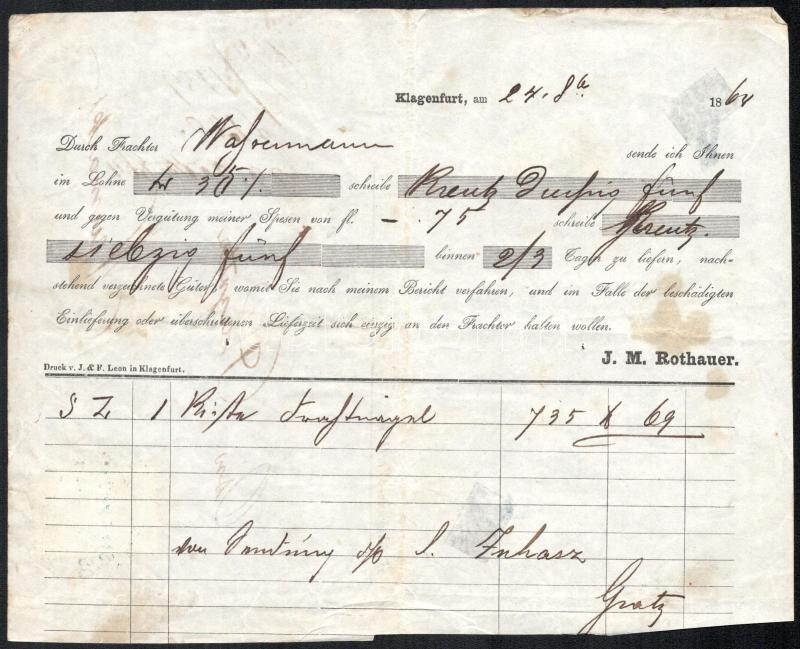 Klagenfurt, am 24. 8b 186
Durch Frachter Wassermann sende ich Ihnen
im Lohne 35 schreibe Kreutz Dreisig fünf
und gegen Vergütung meiner Spesen von fl. - . 75 schreibe Kreutz.
siebzig fünf binnen 2/3 Tagen zu liefern, nach-
stehend verzeichnete Güter, womit Sie nach meinem Bericht verfahren, und im Falle der beschädigten
Einlieferung oder überschrittenen Lieferzeit sich einzig an den Frachter halten wollen.
J. M. Rothauer.
Druck v. J. & F. Leon in Klagenfurt.
S Z 1 Kiste 735 69
Sendung S. Juhasz
Gratz